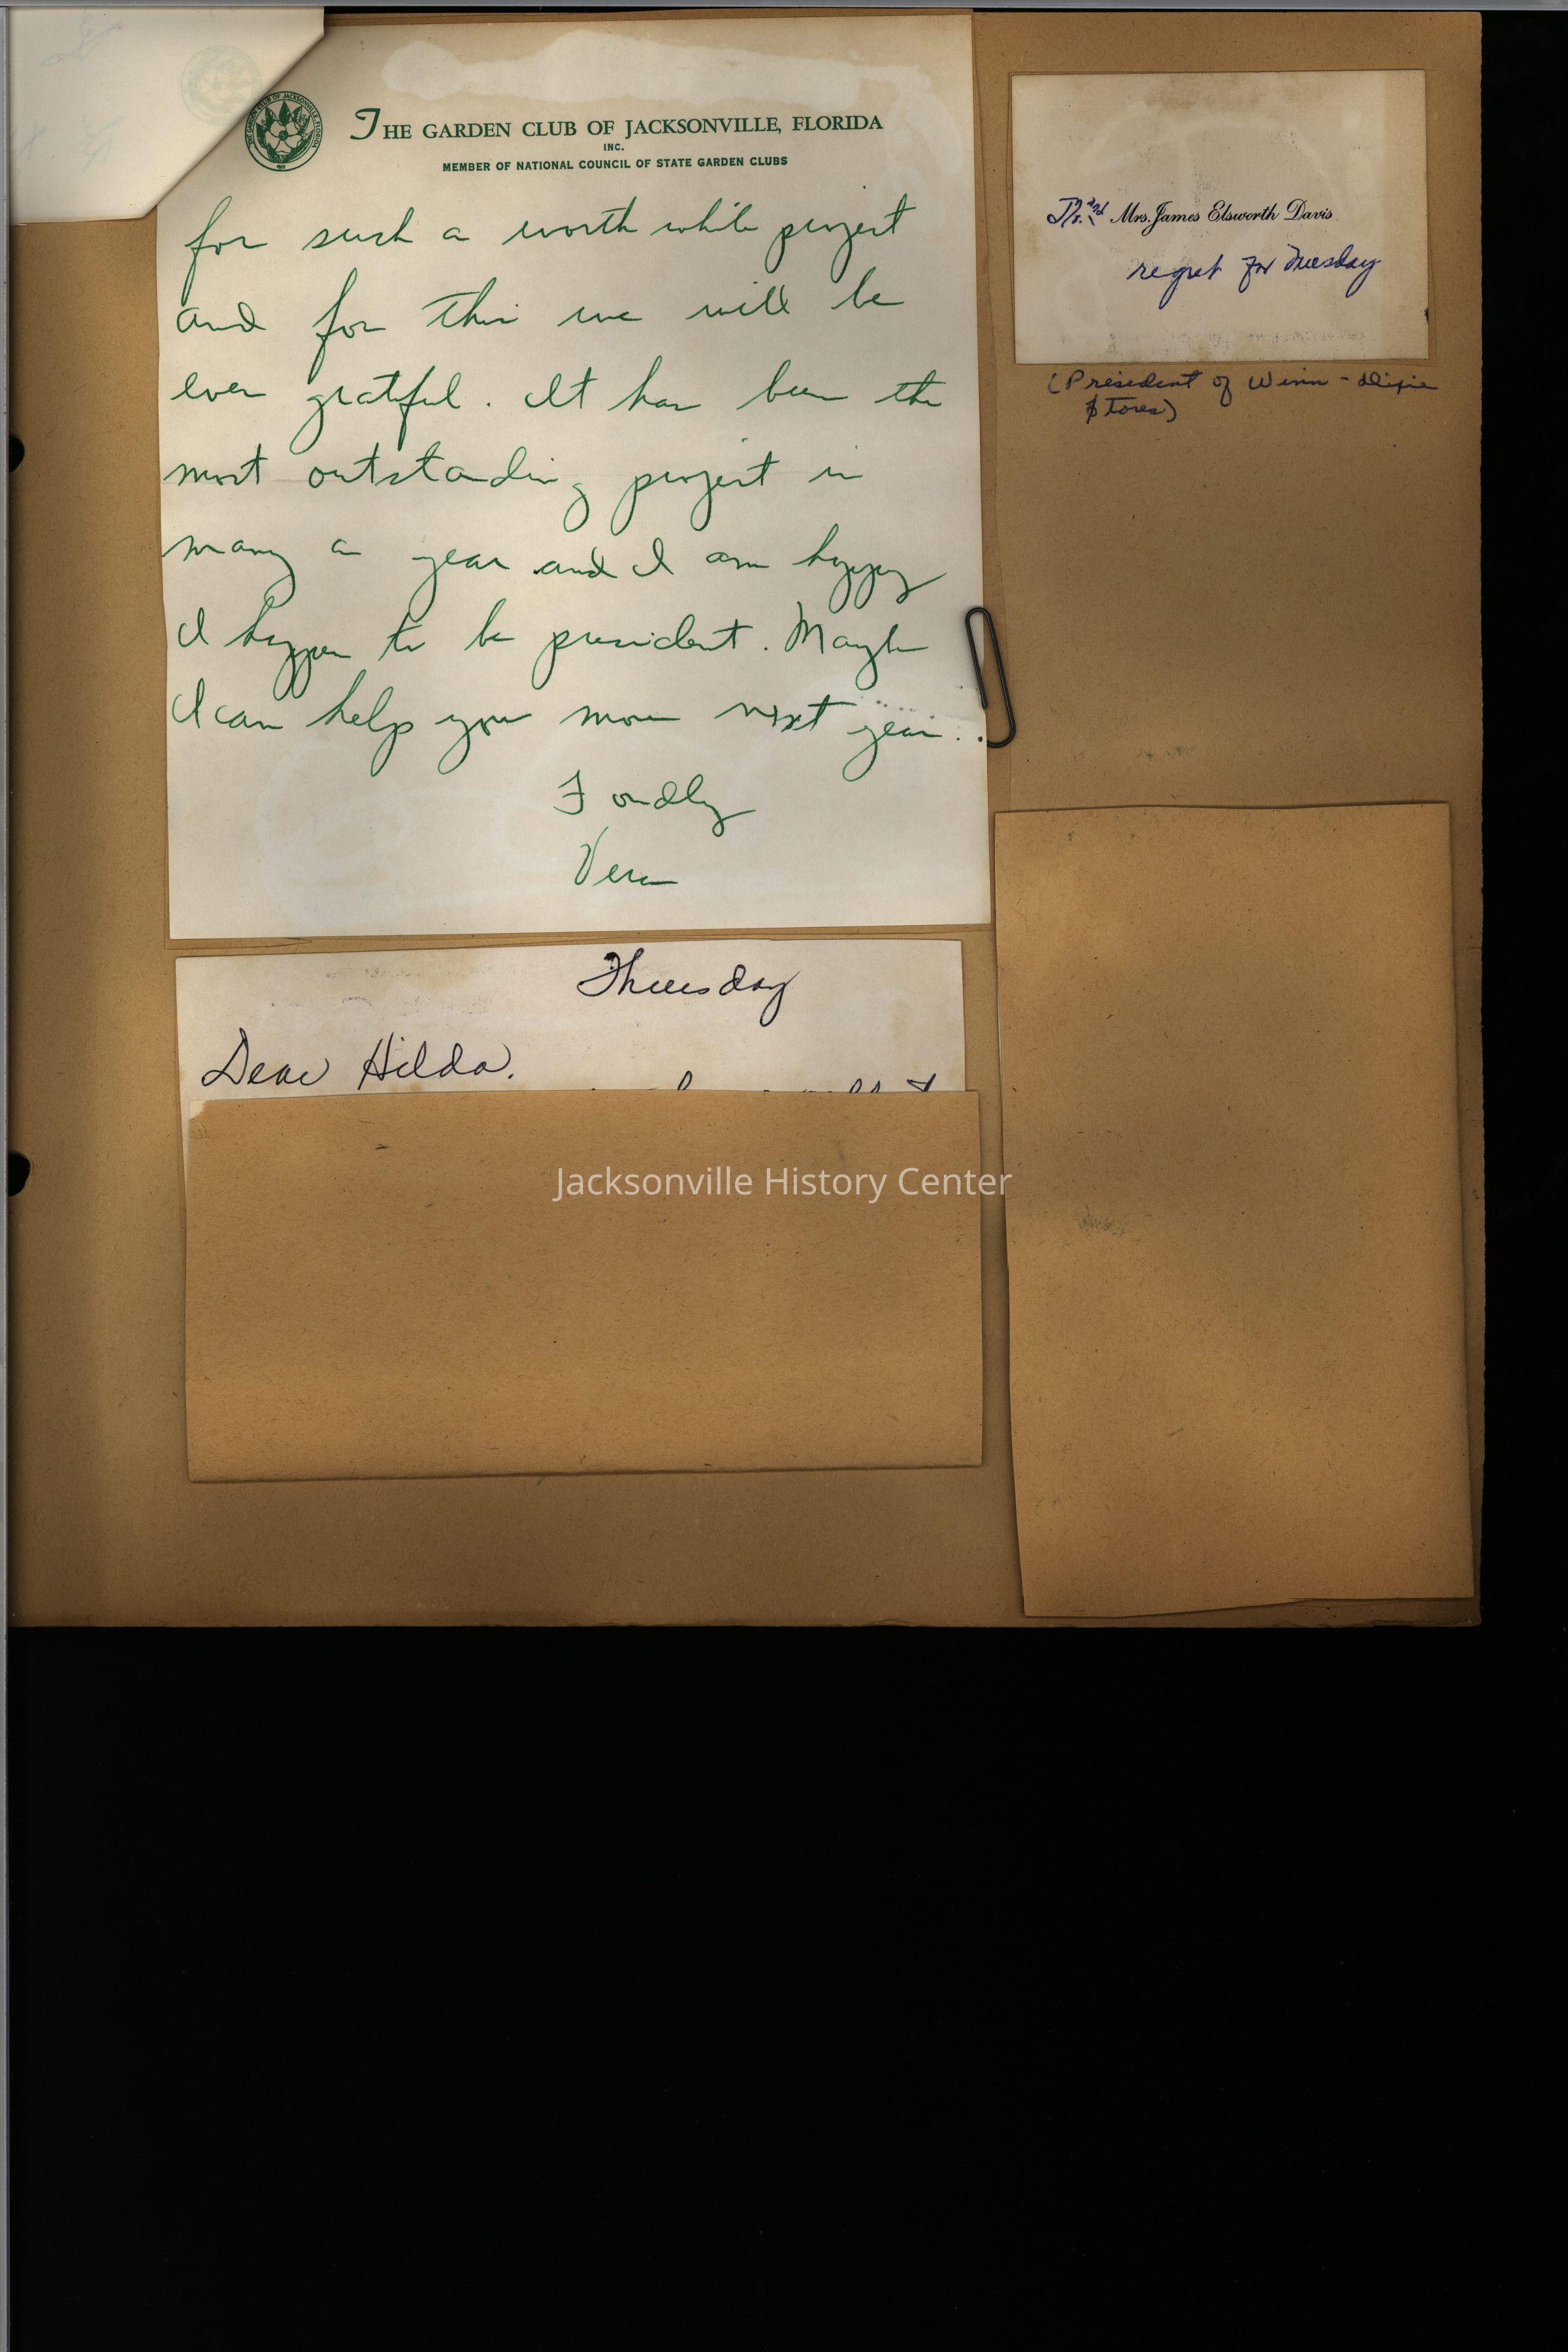 THE GARDEN CLUB OF JACKSONVILLE, FLORIDA
INC.
MEMBER OF NATIONAL COUNCIL OF STATE GARDEN CLUBS
for such a worth while project
and for this we will be
ever grateful. It has been the
most outstanding project in
many a year and I am happy
I happen to be president. Maybe
I can help you more next year.
Fondly
Vera
Thursday
Dear Hilda.
and Mrs. James Elsworth Davis
regret for Tuesday
(President of Winn-Dixie
Stores)
Jacksonville History Center